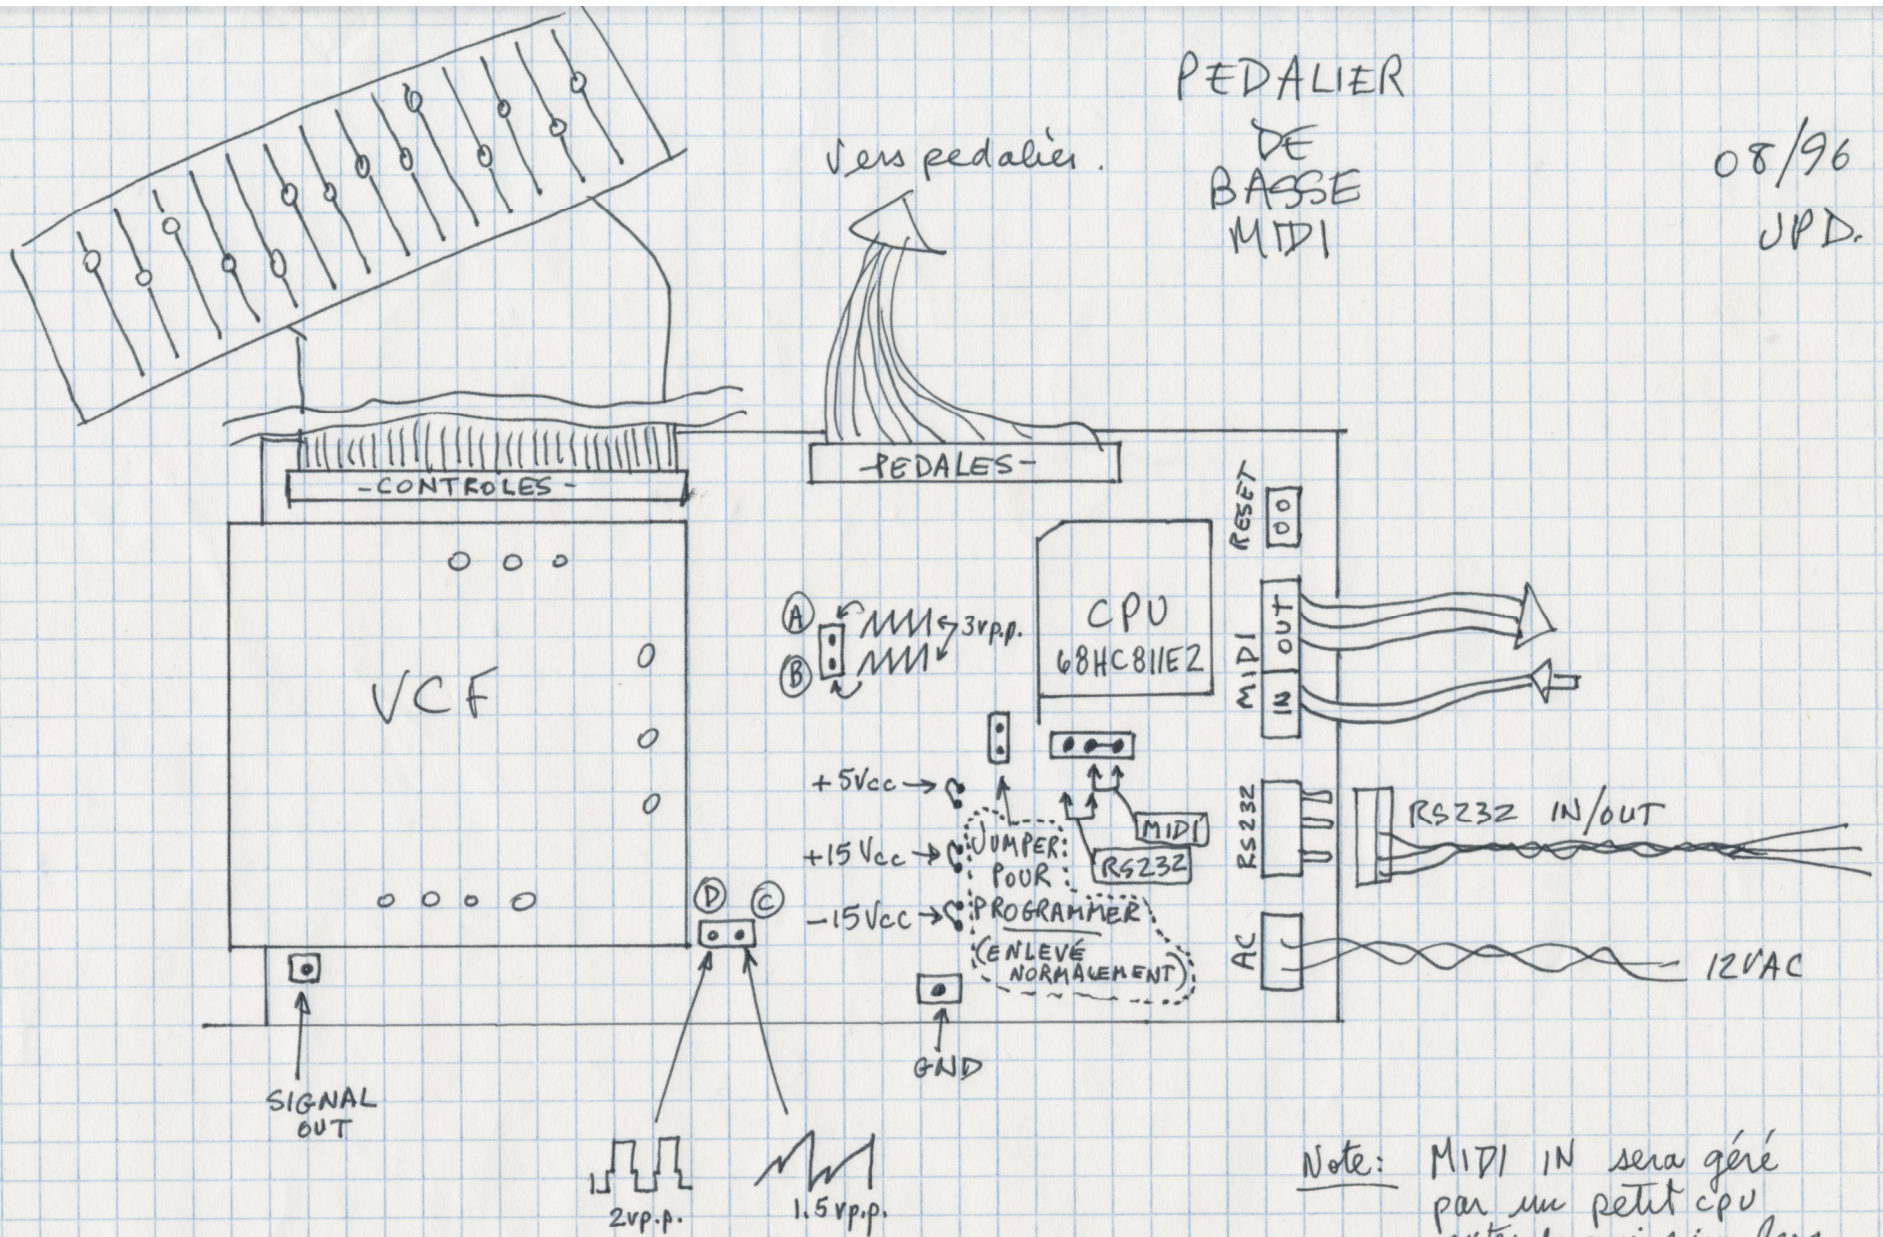 PEDALIER
DE
BASSE
MIDI
08/96
JPD.
Vers pedalier.
-CONTROLES-
-PEDALES-
RESET
MIDI
OUT
IN
CPU
68HC811E2
A
B
3vp.p.
VCF
+5Vcc
+15Vcc
-15Vcc
JUMPER
POUR
PROGRAMMER
(ENLEVÉ
NORMALEMENT)
MIDI
RS232
RS232
RS232 IN/OUT
AC
12VAC
D
C
GND
SIGNAL
OUT
2vp.p.
1.5vp.p.
Note: MIDI IN sera géré
par un petit cpu